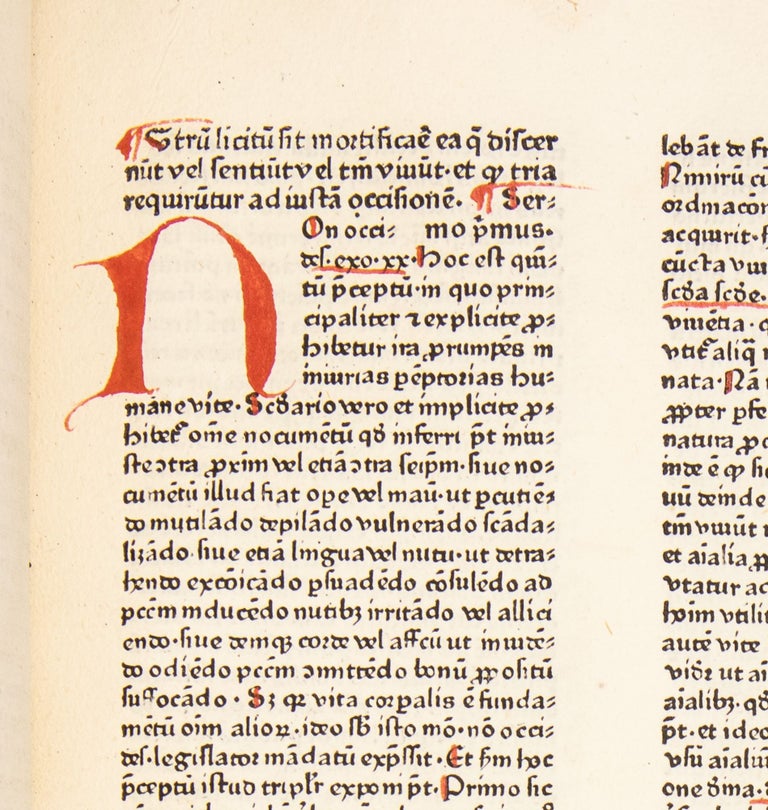 ¶ Utrũ licitũ sit mortificaẽ ea q̃ discer
nũt vel sentiũt vel tm̃ viuũt· et ꝙ tria
requirũtur ad iustã occisionẽ. ¶ Ser⸗
N On occi⸗ mo p̃mus.
des· exo· xx· Hoc est quĩ⸗
tũ p̃ceptũ· in quo prin⸗
cipaliter ⁊ explicite ꝓ⸗
hibetur ira ꝓrumpẽs in
iniurias ꝑẽptorias hu⸗
mane vite. Scd̃ario vero et implicite ꝓ⸗
hibet᷑ om̃e nocumẽtũ qd̃ inferri p̃t iniu⸗
ste ↄtra ꝓxim̃ vel etiã ↄtra seip̃m· siue no⸗
cumẽtũ illud fiat ope vel manũ· ut ꝑcutiẽ⸗
do mutilãdo depilãdo vulnerãdo scãda⸗
lizãdo· siue etiã lingua vel nutu· ut detra⸗
hendo excõicãdo ꝑsuadẽdo cõsulẽdo ad
pccm̃ inducẽdo nutibꝫ irritãdo vel allici
endo· siue deniqꝫ corde vel affcũ ut inuidẽ⸗
do odiẽdo pccm̃ ↄmittẽdo bonũ ꝓxositũ
suffocãdo. Sꝫ qꝛ vita corꝑalis ẽ funda⸗
mẽtũ oim̃ alioꝝ· ideo sb̃ isto mõ· nõ occi⸗
des· legislator mãdatũ exp̃ssit. Et sm̃ hoc
p̃ceptũ istud triplr̃ exponi p̃t. Primo sic
lebãt de fr
Nimirũ cũ
ordinacõn
acquirit· h
cũcta viu
scd̃a scd̃e.
viuẽtia· q
vtit᷑ aliq̃
nata· Nã
ꝓpter ꝑfe
natura ꝓc
inde ẽ ꝙ sic
uũ deinde
tm̃ viuũt
et aĩalia ꝓ
vtatur ac
hoĩm vtilit
autẽ vite
vidꝛ ut aĩ
aĩalibꝫ· qd̃
p̃t· et ideo
vsũ aĩaliũ
one d̃ma·